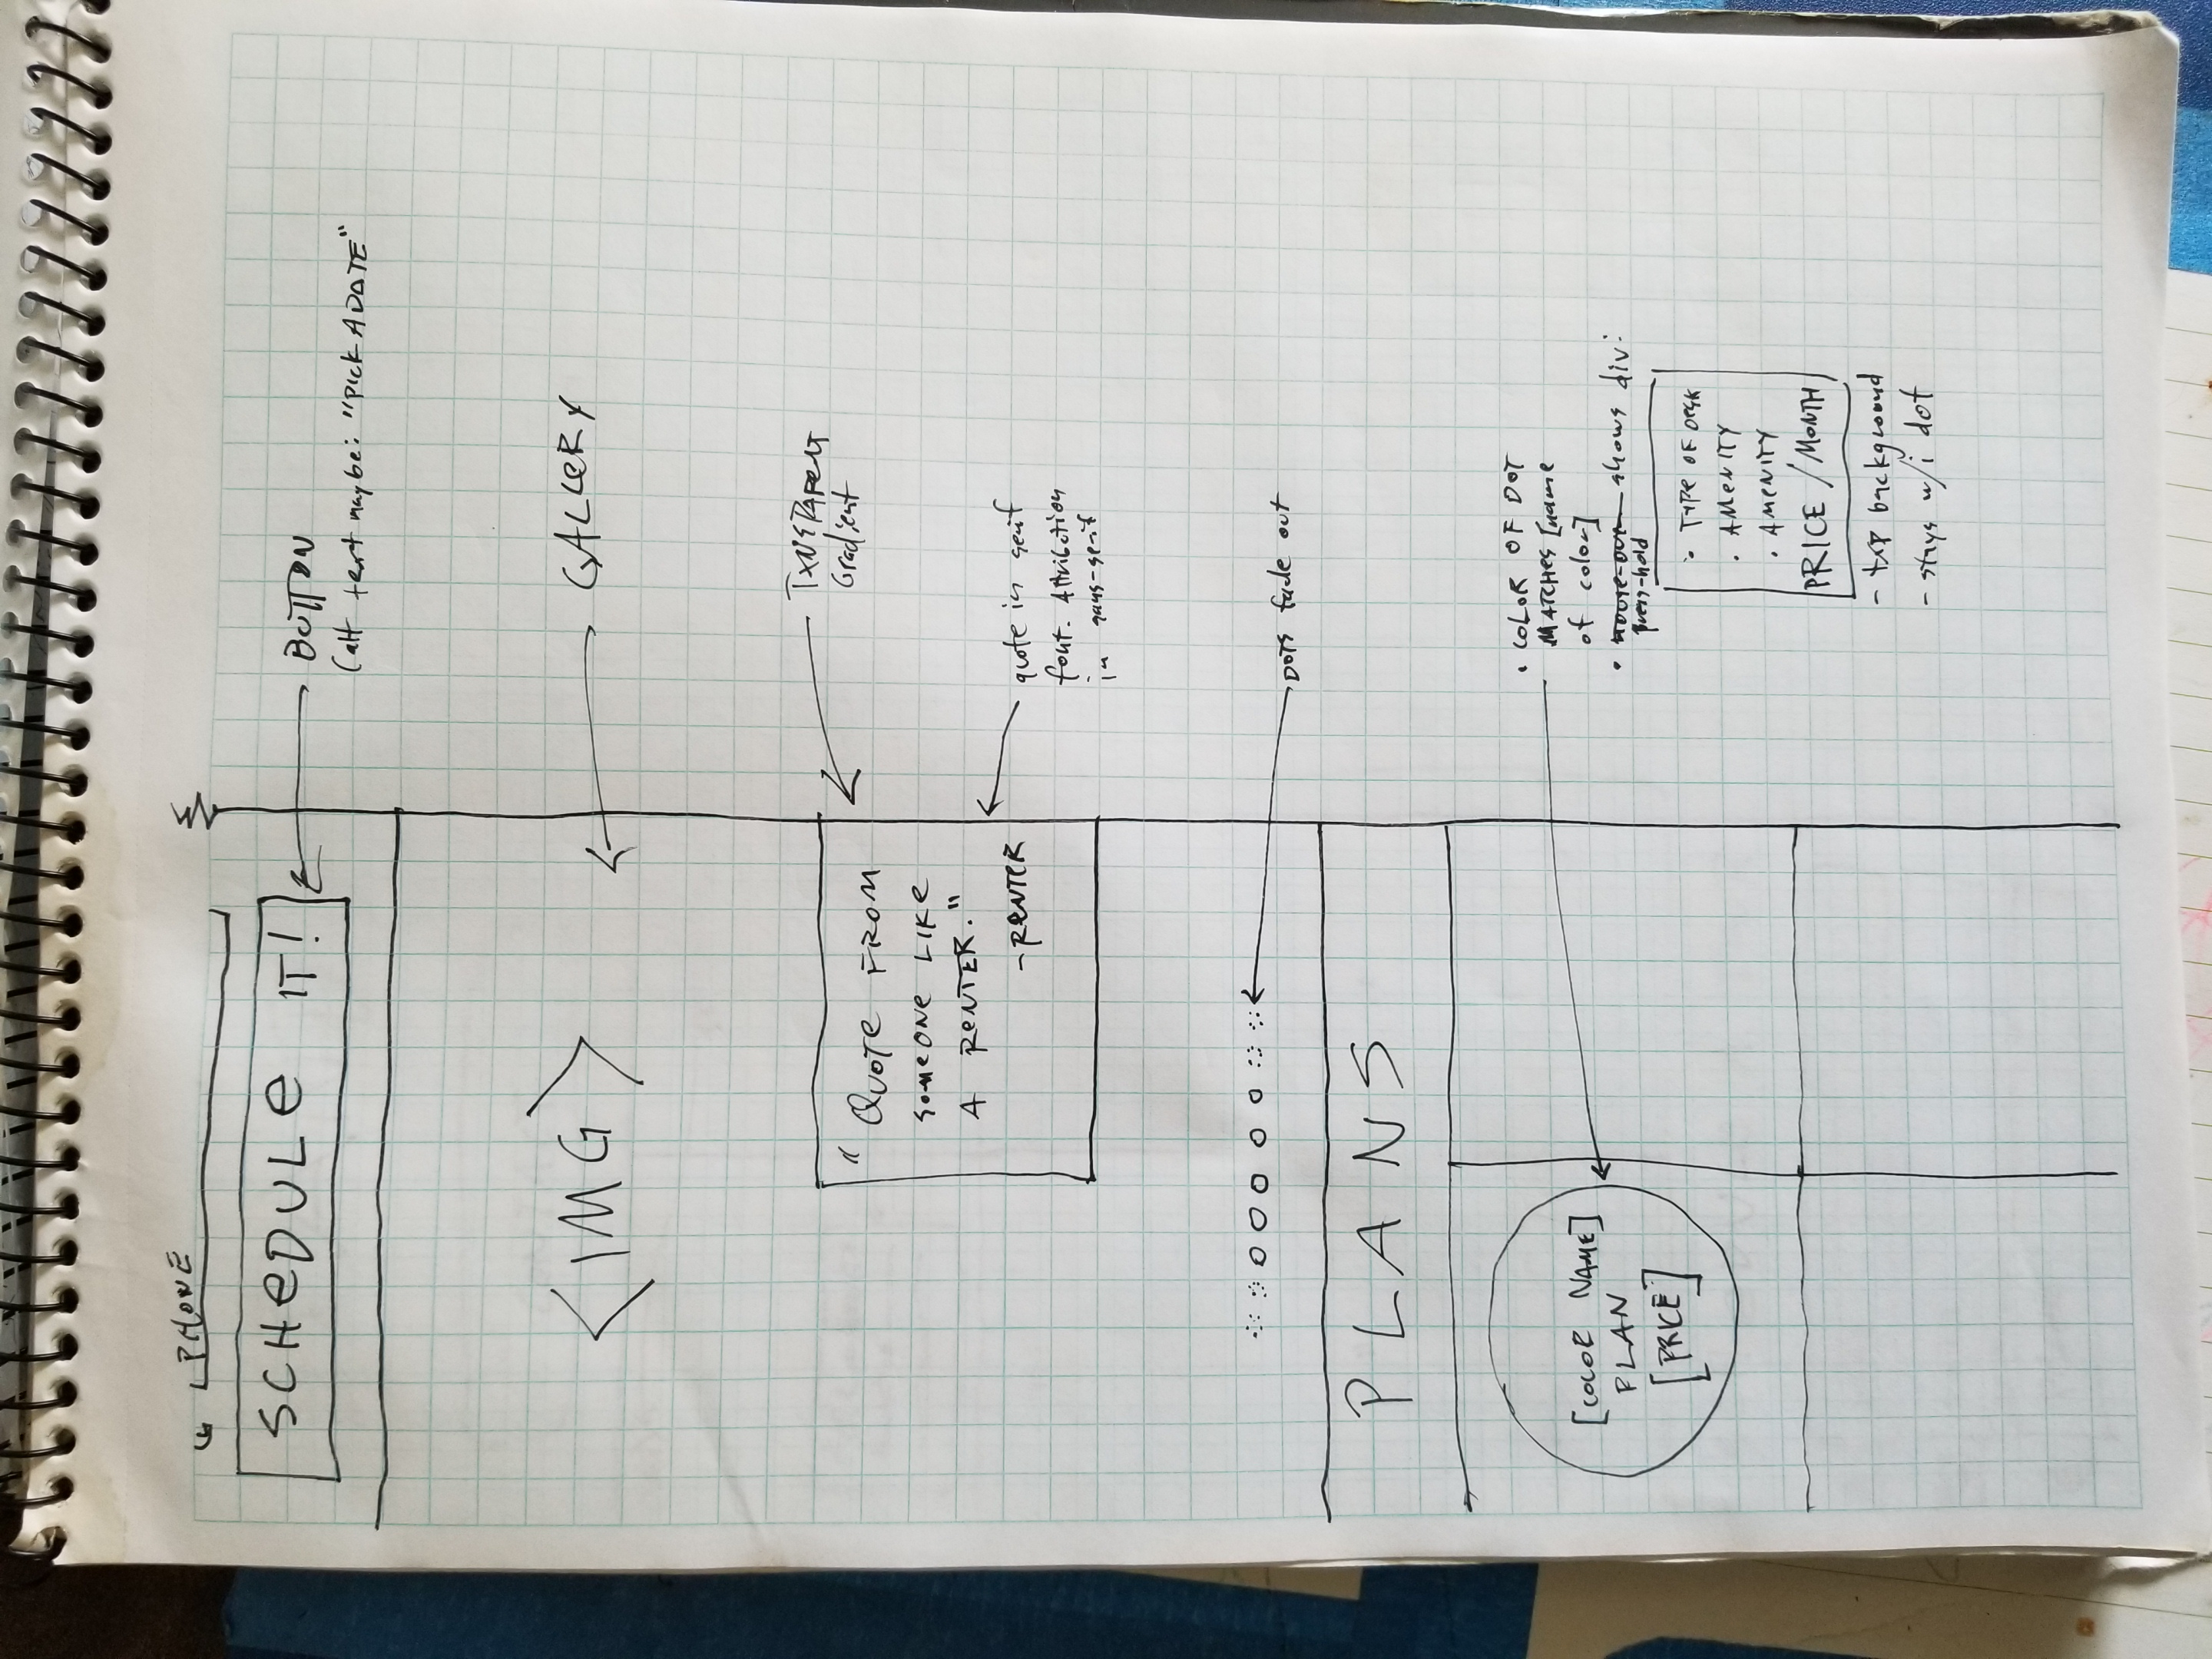 PHONE
SCHEDULE IT!
BUTTON
(alt text maybe: "PICK A DATE"
<IMG>
GALLERY
Gradient
"QUOTE FROM
SOMEONE LIKE
A RENTER."
-RENTER
quote in serif
font. Attribution
in sans-serif
DOTS fade out
PLANS
[COLOR NAME]
PLAN
[PRICE]
• COLOR OF DOT
MATCHES [name
of color]
• shows div:
press-hold
• TYPE OF DESK
• AMENITY
• AMENITY
PRICE/MONTH
- txp background
- stays w/i dot